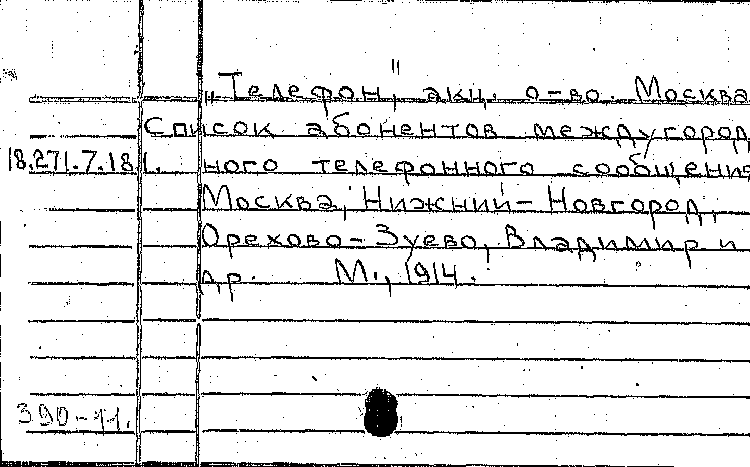 „Телефон", акц. о-во. Москва
Список абонентов междугород
18.271.7.181. ного телефонного сообщения
Москва, Нижний-Новгород,
Орехово-Зуево, Владимир и
др. М., 1914.
390-11.